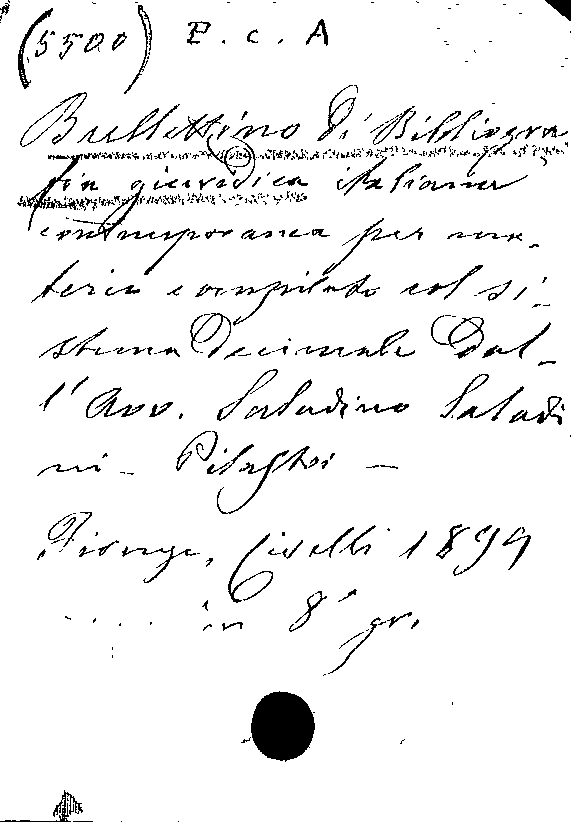 (5500) P. c. A
Bullettino di Bibliogra
fia giuridica italiana
contemporanea per ma-
teria compilato col si-
stema Decimale Dal-
l' Avv. Saladino Saladi
ni - Pilastri -
Firenze, Civelli 1899
..... in 8° gr.